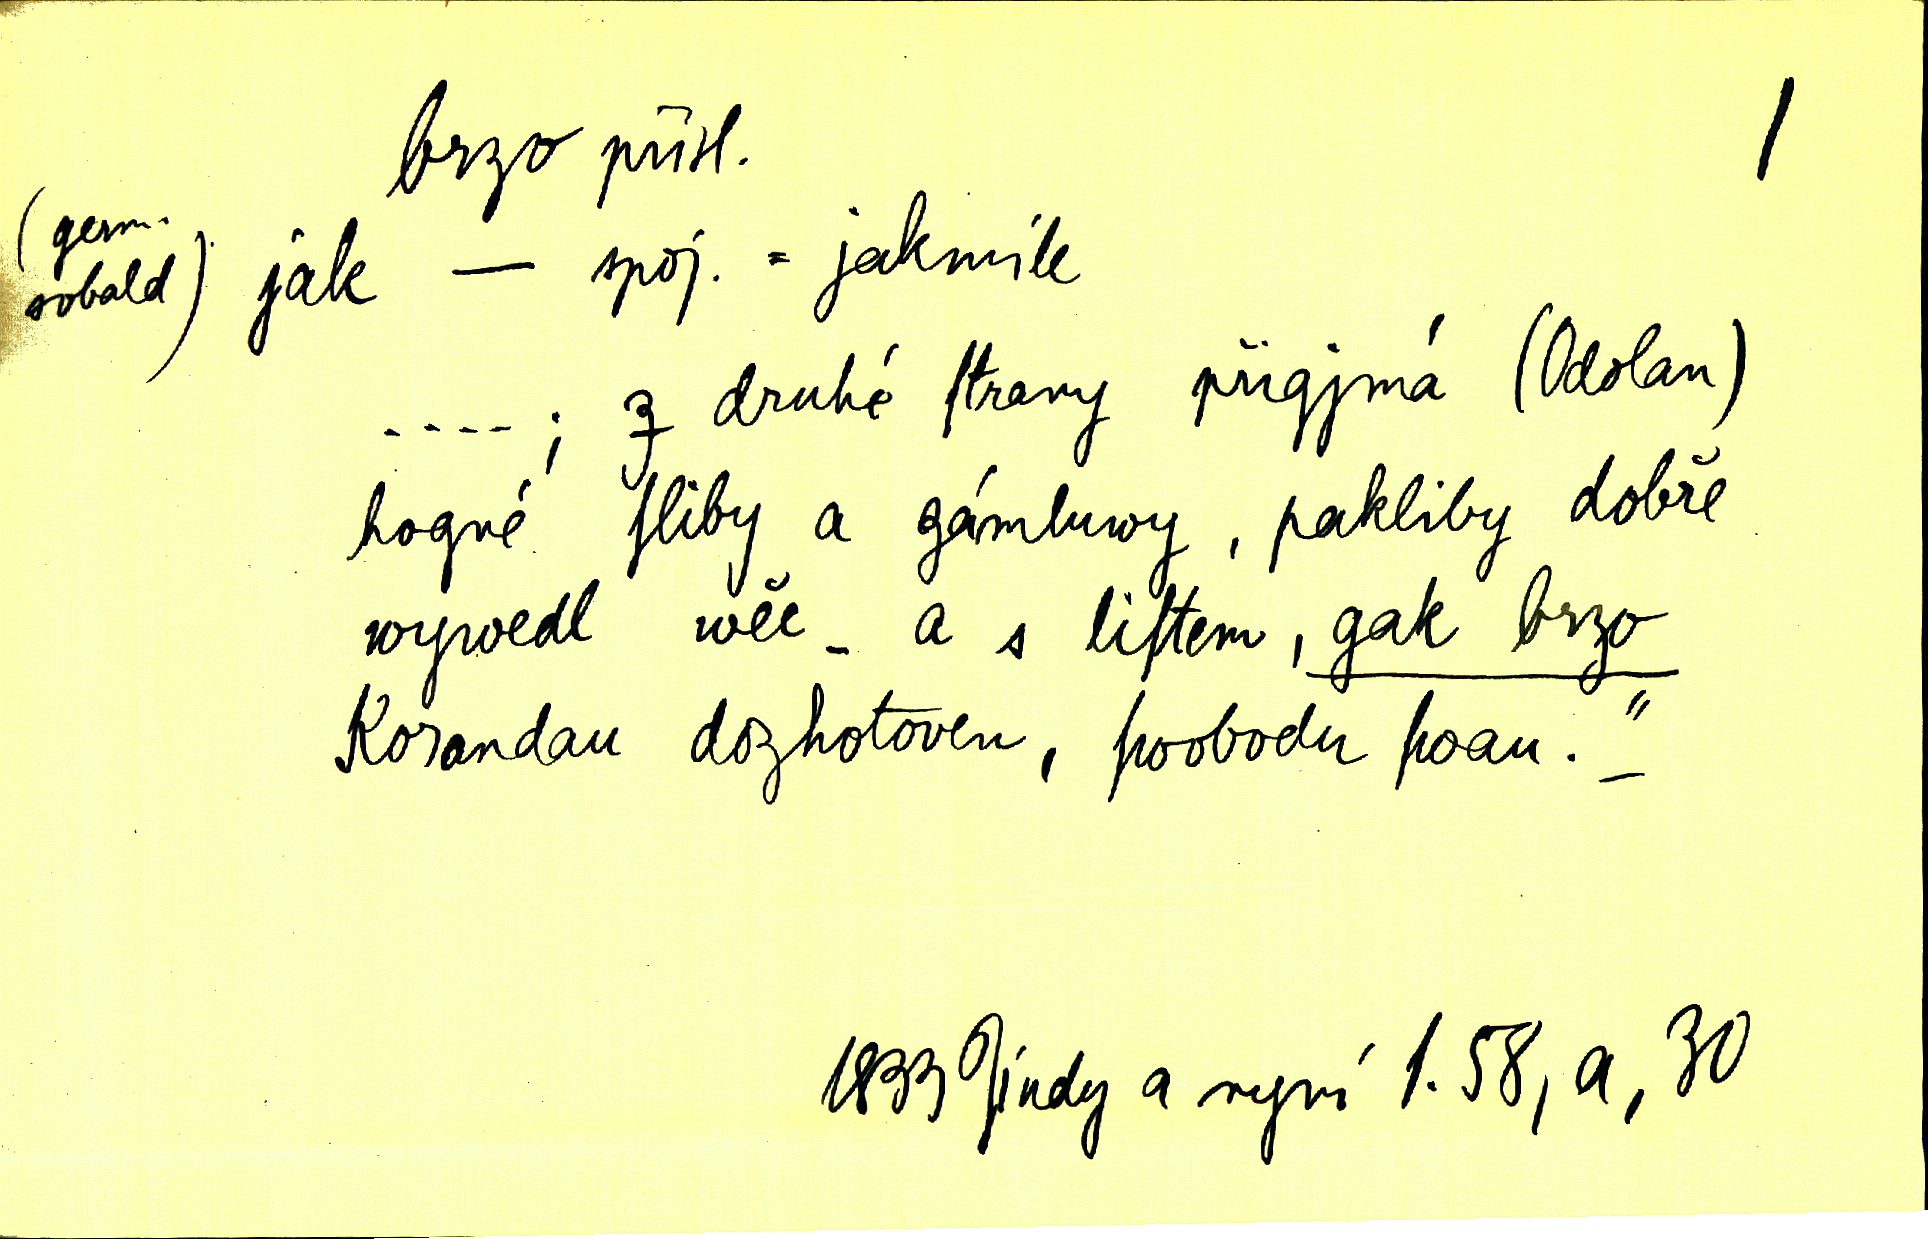 brzo přísl. 1
(germ. sobald) jak — spoj. = jakmile
- - - - ; z druhé ſtrany přigjmá (Odolan)
hogné ſliby a gámluwy, pakliby dobře
wywedl wěc - a s liſtem, gak brzo
Korandau dozhotoven,
1833 Jindy a nyní 1. 58, a, 30